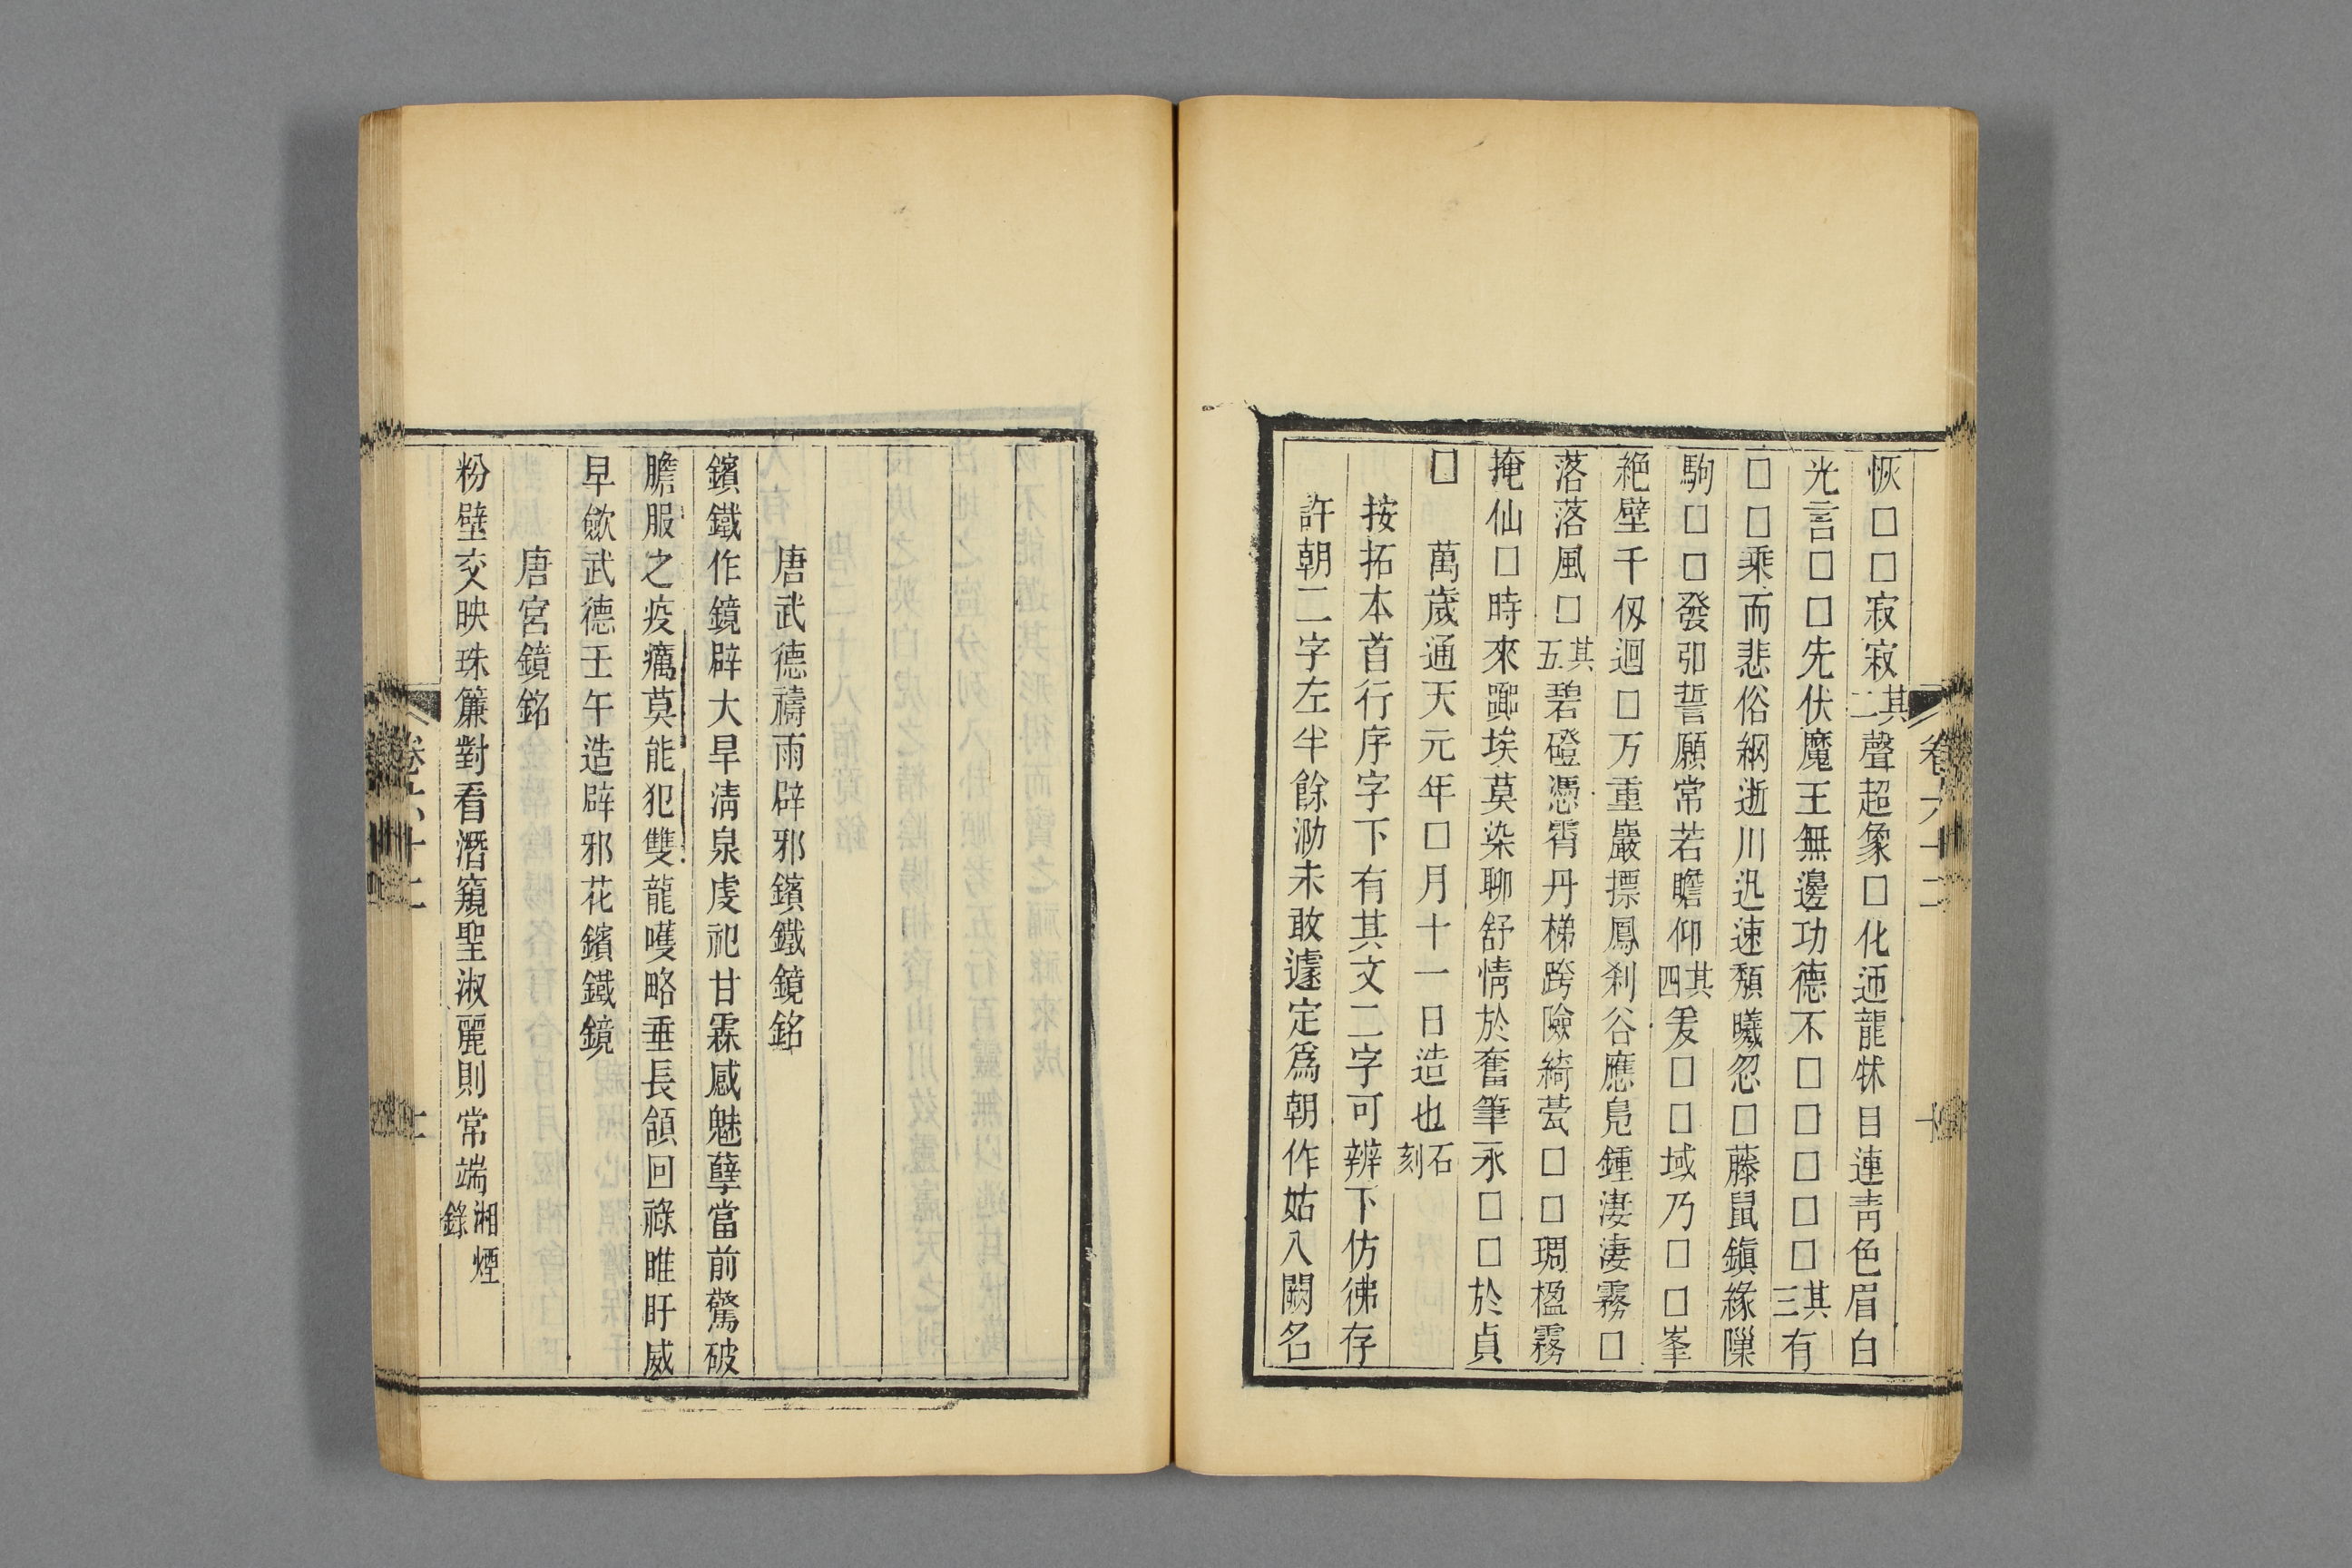 恢□□寂寂其二聲超象□化迊龍牀目連靑色眉白
光言□□先伏魔王無邊功德不□□□□□其三有
□□乘而悲俗網逝川迅速頹曦忽□藤鼠鎭緣隟
駒□□發弨誓願常若瞻仰其四爰□□域乃□□□峯
絶壁千仭迴□万重巖摽鳳刹谷應鳧鍾淒淒霧□
落落風□其五碧磴憑霄丹梯跨險綺甍□□琱楹霧
掩仙□時來躧埃莫染聊舒情於奮筆永□□於貞
□　萬歲通天元年□月十一日造也石刻
按拓本首行序字下有其文二字可辨下仿彿存
許朝二字左半餘泐未敢遽定爲朝作姑入闕名
卷六十二
十
唐武德禱雨辟邪鑌鐵鏡銘
鑌鐵作鏡辟大旱淸泉虔祀甘霖感魅孽當前驚破
膽服之疫癘莫能犯雙龍嚄略垂長頷回祿睢盱威
早斂武德壬午造辟邪花鑌鐵鏡
唐宮鏡銘
粉壁交映珠簾對看潛窺聖淑麗則常端湘煙錄
卷六十二